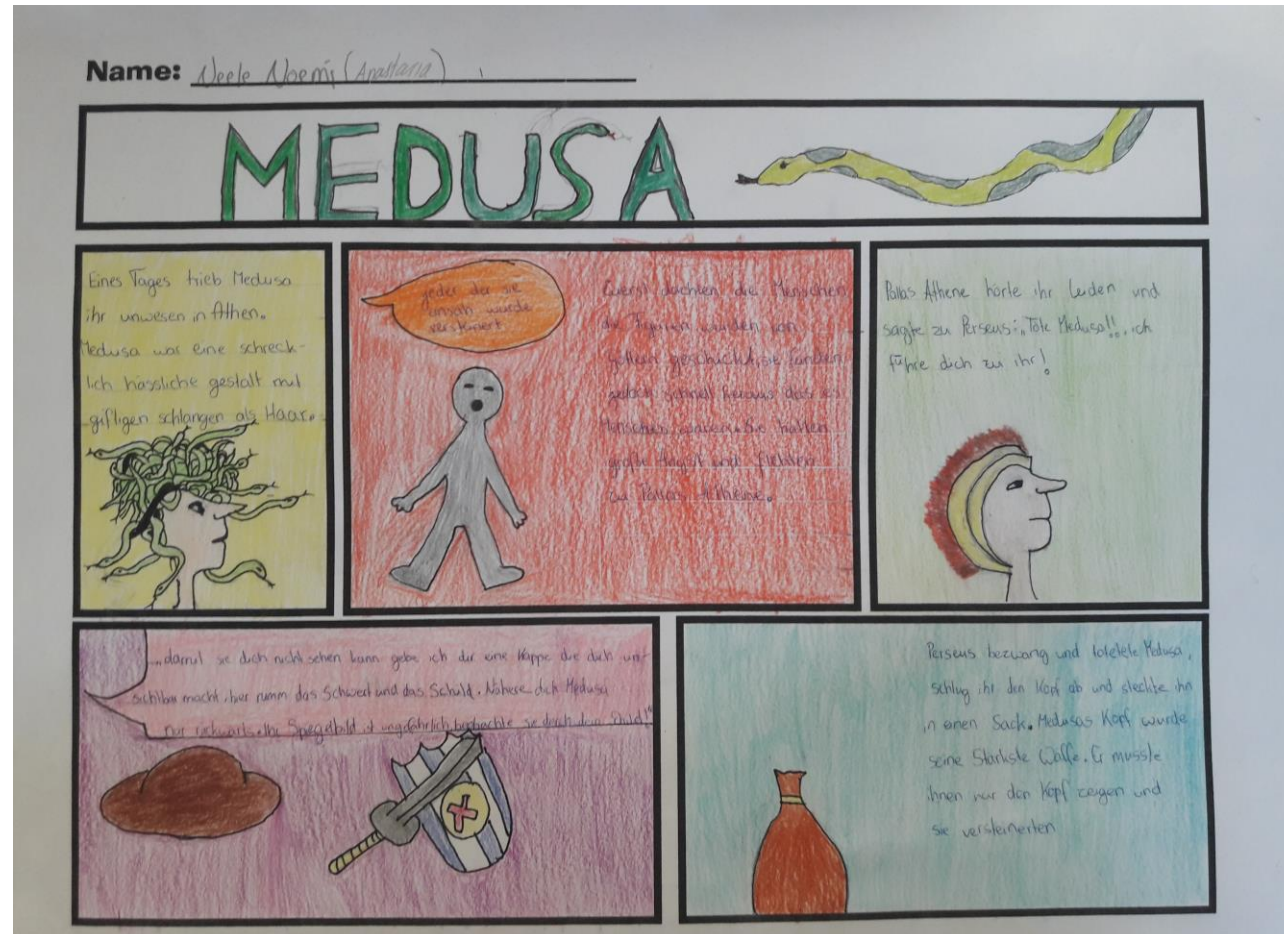 Name: Neele Noemi (Anastasia)
MEDUSA
Eines Tages trieb Medusa
ihr unwesen in Athen.
Medusa war eine schreck-
lich hässliche gestalt mit
giftigen schlangen als Haar.
jeder der sie
ansah wurde
versteinert
Zuerst dachten die Menschen
die Figuren würden von
göttern geschickt, sie fanden
jedoch schnell heraus das es
Menschen waren. Sie hatten
große Angst und
zu Pallas Athene.
Pallas Athene hörte ihr Leiden und
sagte zu Perseus: „Töte Medusa!!.. ich
führe dich zu ihr!
...damit sie dich nicht sehen kann gebe ich dir eine Kappe die dich un-
sichtbar macht. hier nimm das Schwert und das Schild. Nähere dich Medusa
nur rückwärts. Ihr Spiegelbild ist ungefährlich beobachte sie durch dein Schild!"
Perseus bezwang und tötetete Medusa,
schlug ihr den Kopf ab und steckte ihn
in einen Sack. Medusas Kopf wurde
seine Stärkste Waffe. Er musste
ihnen nur den Kopf zeigen und
sie versteinerten